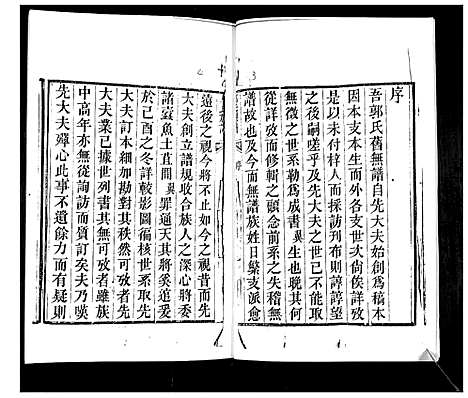 序
吾郭氏舊無譜自先大夫始創為稿本
因本支本生而外各支世次尚俟詳攷
是以未付梓人而採訪刊布則諄諄望
之後嗣嗟乎及先大夫之世已不能取
無徵之世系勒為成書冀生也晩其何
從詳攷而修輯之顧念前此之失稽無
譜故也及今而無譜族姓日縣支派愈
遠後之視今將不止如今之視昔而先
大夫創立譜規收合族人之深心將委
諸壼魚土苴間冀罪通天其將奚追爰
於己酉之冬詳較影圖徧核世系取先
大夫訂本細加勘對其秩然可攷者先
大夫業已據世列書其無可攷者雖族
中高年亦無從詢訪而質訂矣夫乃嘆
先大夫殫心此事不遺餘力而有疑則